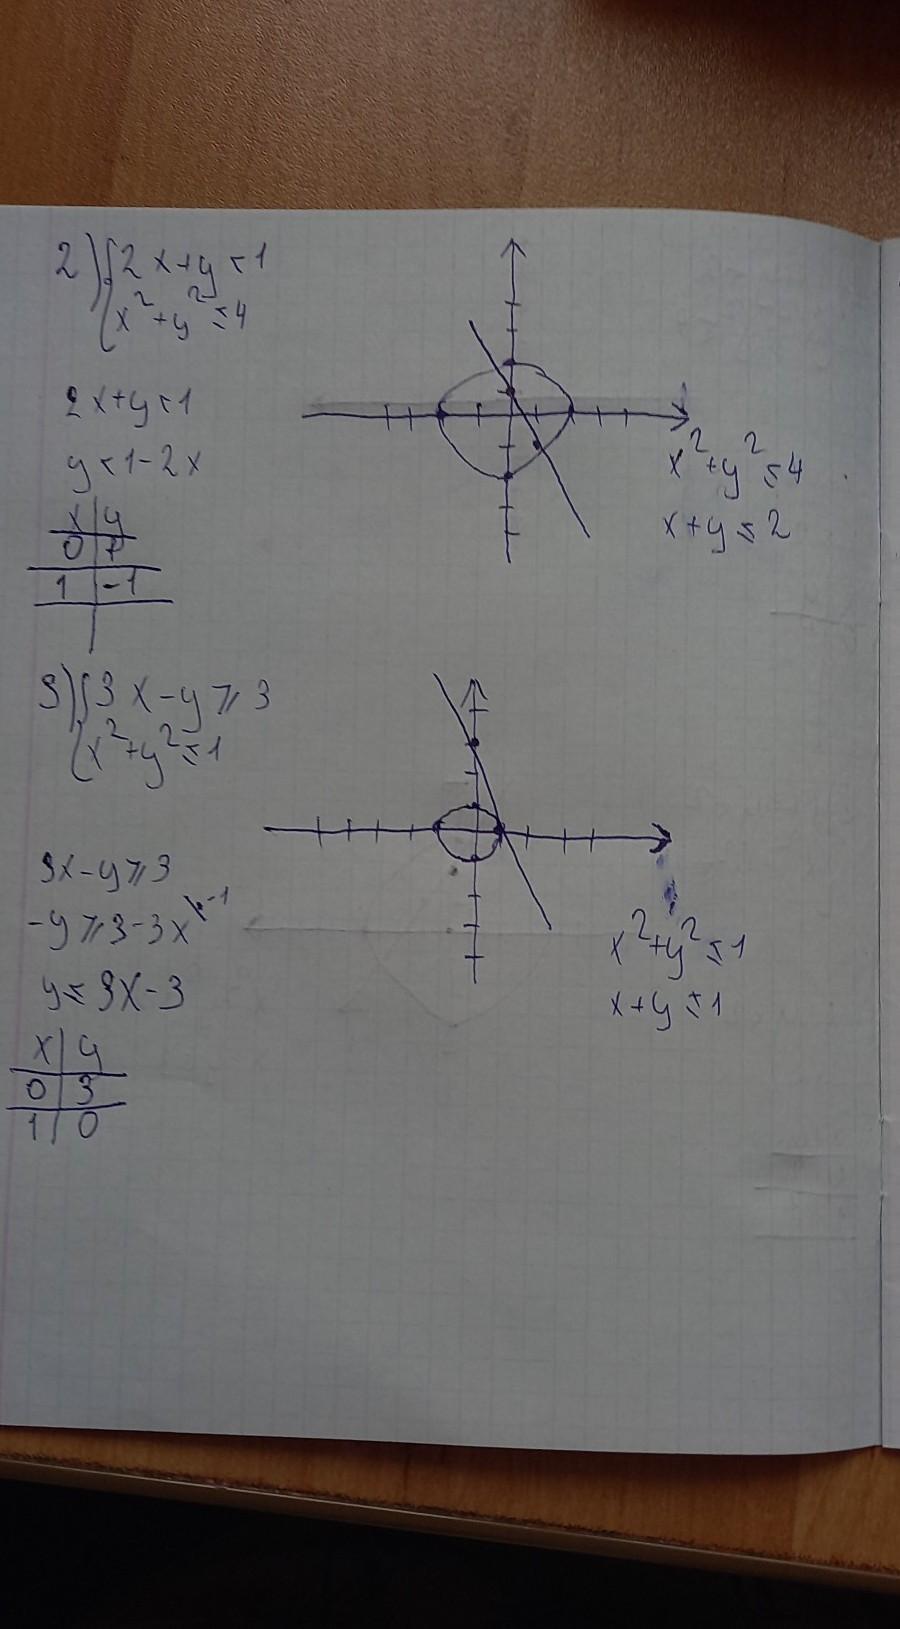 2) { 2x+y<1
x²+y²≤4
2x+y<1
y<1-2x
x | y
0 | 1
1 | -1
x²+y²≤4
x+y≤2
3) { 3x-y⩾3
x²+y²≤1
3x-y⩾3
-y⩾3-3x |·-1
y≤3x-3
x | y
0 | 3
1 | 0
x²+y²≤1
x+y≤1